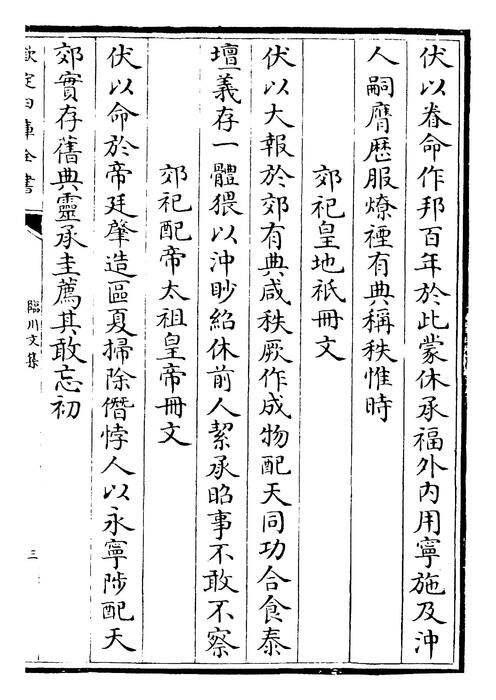 伏以眷命作邦百年於此蒙休承福外内用寧施及沖
人嗣膺歴服燎禋有典稱秩惟時
郊祀皇地祇冊文
伏以大報於郊有典咸秩厥作成物配天同功合食泰
壇義存一體猥以沖眇紹休前人絜承昭事不敢不察
郊祀配帝太祖皇帝冊文
伏以命於帝廷肇造區夏掃除僭悖人以永寧陟配天
郊實存舊典靈承圭薦其敢忘初
欽定四庫全書
臨川文集
三